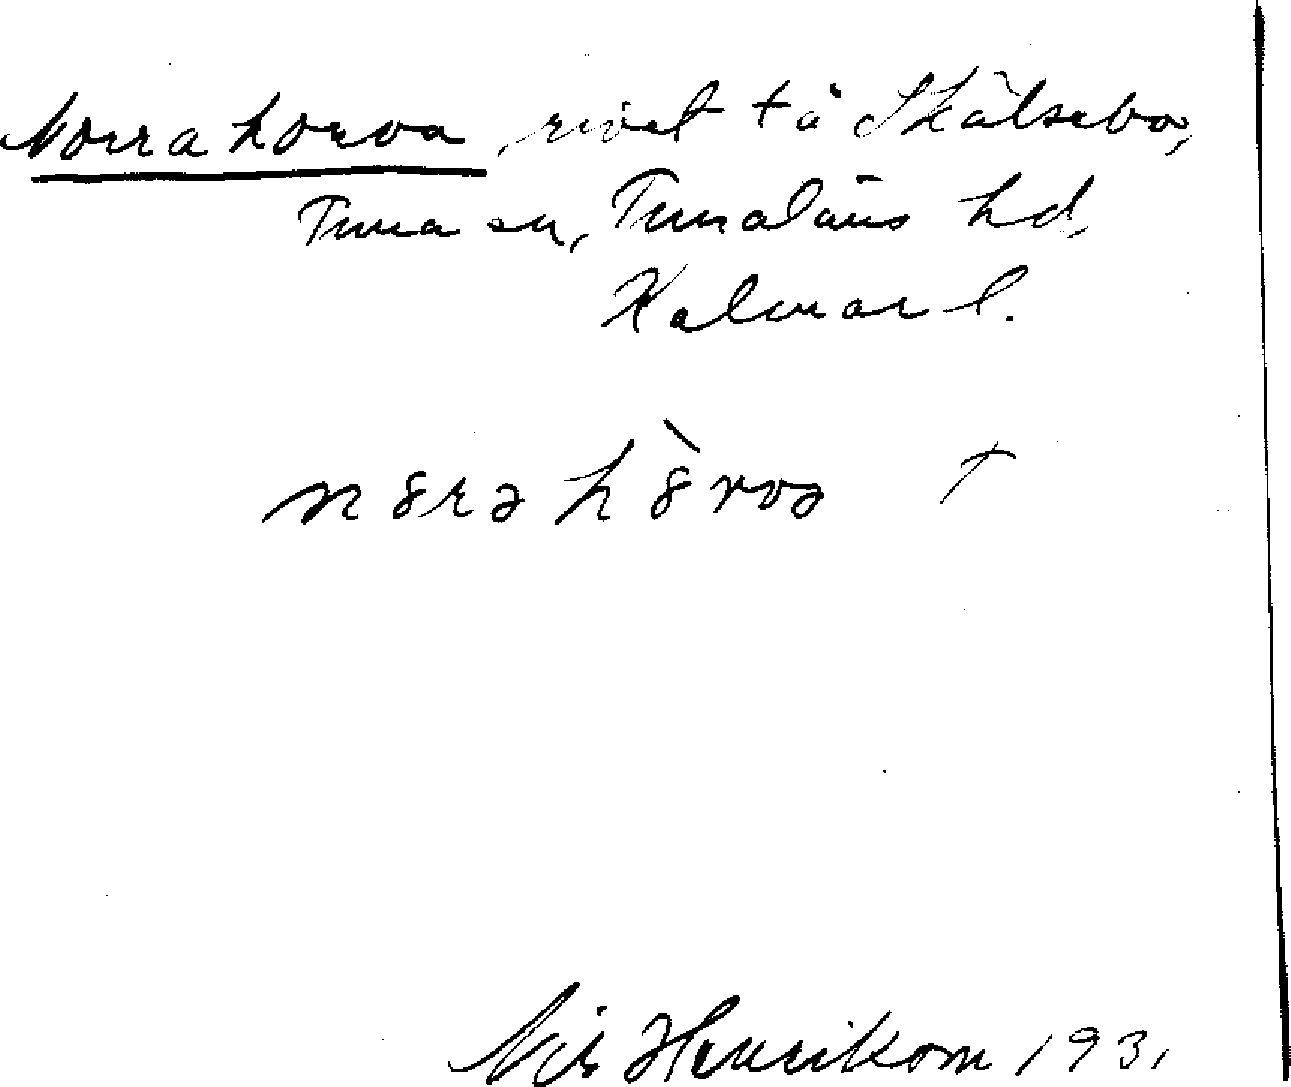 Norra horva, rivet tå Skälsebo,
Tuna sn, Tunaläns hd,
Kalmar l.
nɵrə hɵ̀rvə †
Nils Henrikson 1931